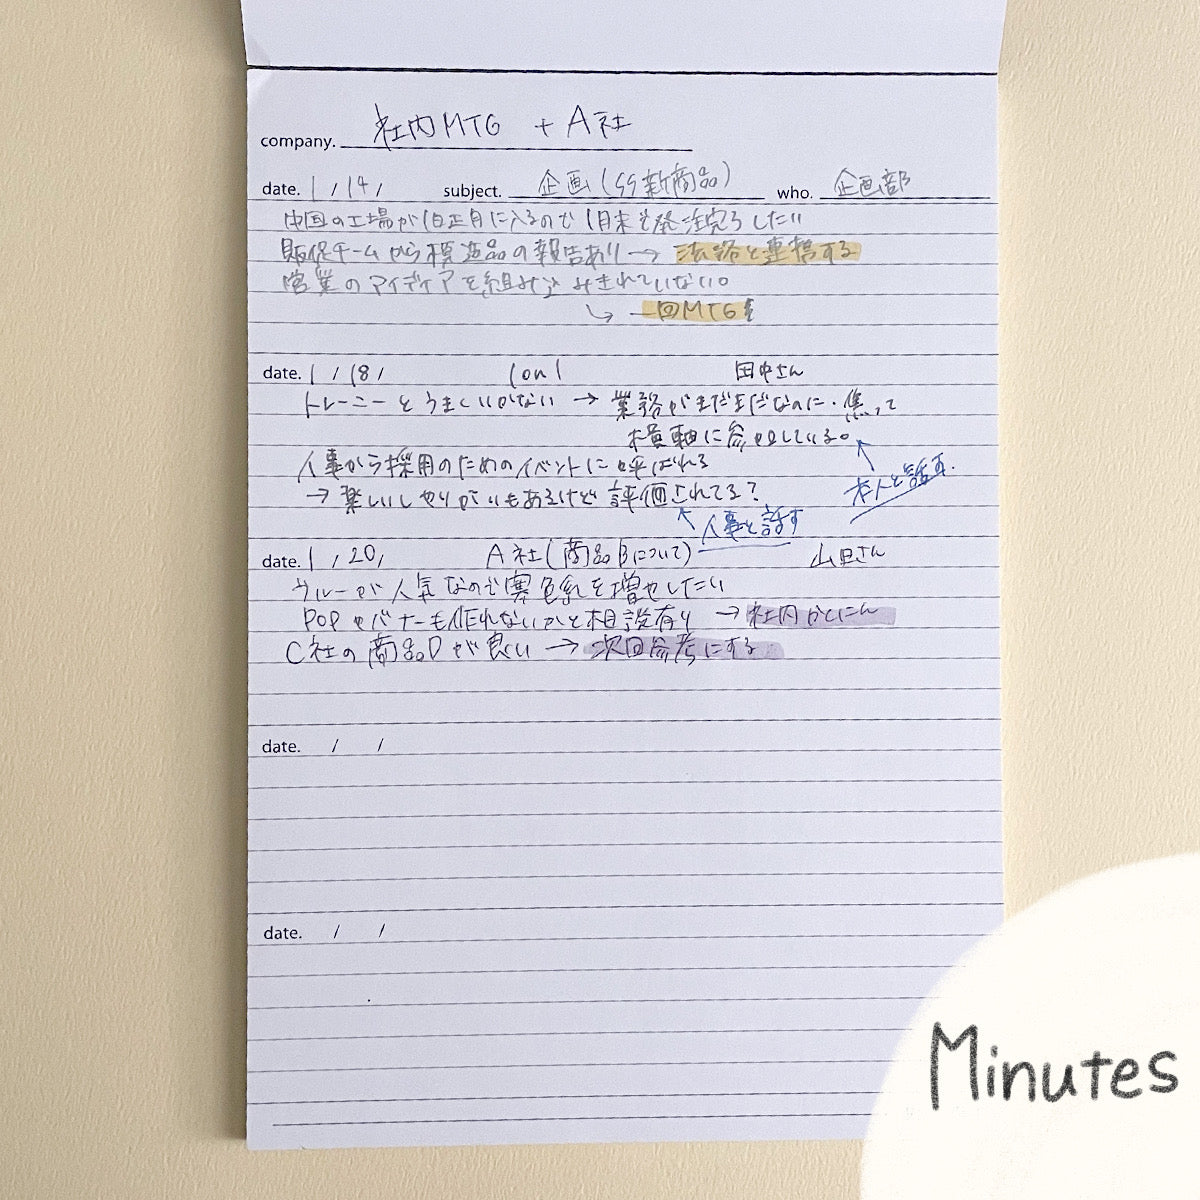 company. 社内MTG + A社
date. 1 / 14 / subject. 企画(SS新商品) who. 企画部
中国の工場が旧正月に入るので1月末も発注完了したい
販促チームから模造品の報告あり → 法務と連携する
営業のアイディアを組み込みきれていない。
↳ 一回MTGを
date. 1 / 18 / 1on1 田中さん
トレーニーとうまくいかない → 業務がまだまだなのに・焦って
横軸に参加している。
人事から採用のためのイベントに呼ばれる
本人と話す.
→ 楽しいしやりがいもあるけど評価されてる?
人事と話す
date. 1 / 20 / A社(商品Bについて) 山田さん
ブルーが人気なので寒色系を増やしたい
POPやバナーも作れないかと相談有り → 社内かくにん
C社の商品Dが良い → 次回参考にする
date. / /
date. / /
Minutes